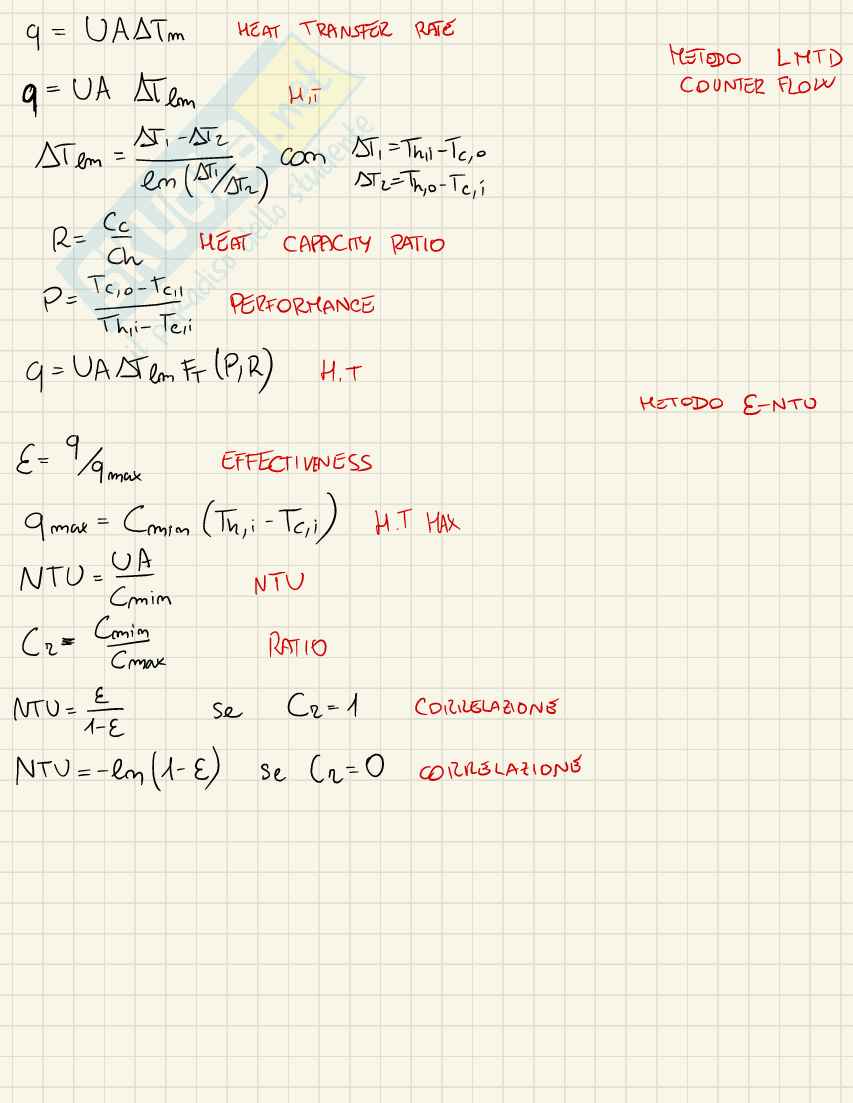 q = UAΔTm HEAT TRANSFER RATE
METODO LMTD
COUNTER FLOW
q = UA ΔTlm H,T
ΔTlm = (ΔT1 - ΔT2) / ln(ΔT1/ΔT2) con ΔT1 = Th,i - Tc,o
ΔT2 = Th,o - Tc,i
R = Cc/Ch HEAT CAPACITY RATIO
P = (Tc,o - Tc,i) / (Th,i - Tc,i) PERFORMANCE
q = UAΔTlm FT (P,R) H.T
METODO ε-NTU
ε = q/qmax EFFECTIVENESS
qmax = Cmin (Th,i - Tc,i) H.T MAX
NTU = UA/Cmin NTU
Cr = Cmin/Cmax RATIO
NTU = ε/(1-ε) se Cr = 1 CORRELAZIONE
NTU = -ln(1-ε) se Cr = 0 CORRELAZIONE
SKUOLA.net
il paradiso dello studente